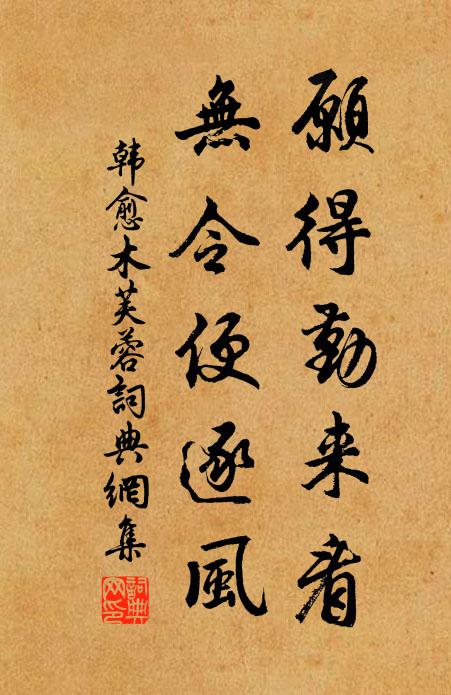 願得勤来看
無令便逐風
韩愈木芙蓉詞典網集
詞典网印